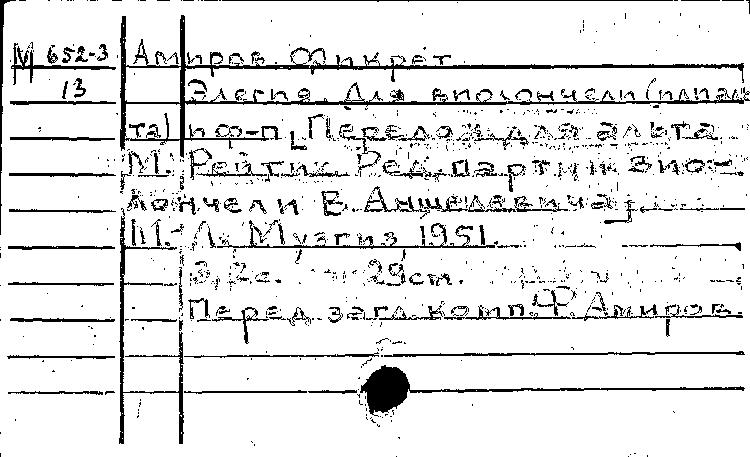 М 652-3 Амиров Фикрет
13 Элегия. Для виолончели (или аль-
та) и ф-п. [Перелож. для альта
М. Рейтих. Ред. партии вио-
лончели В. Аншелевича].
М.-Л., Музгиз, 1951.
3, 2 с. 29 см.
Перед загл. комп. Ф. Амиров.